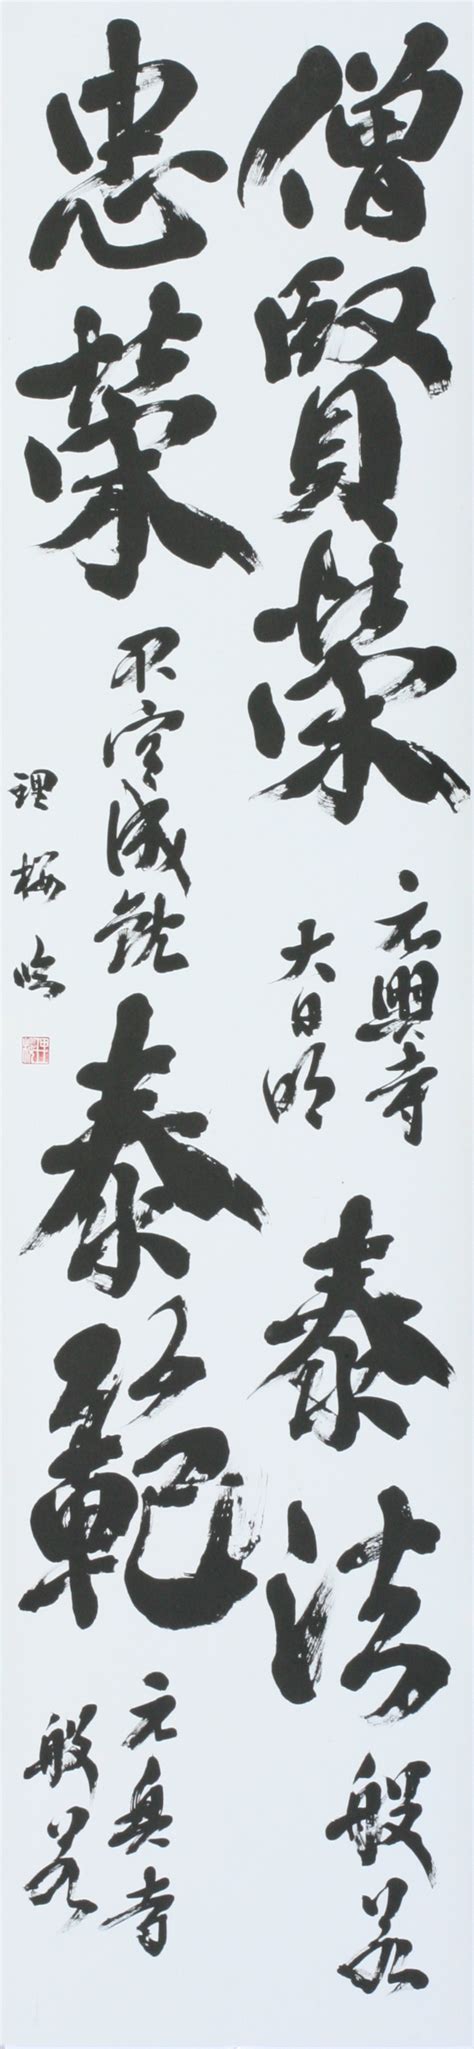 僧賢榮
元興寺
大日明
泰法
般若
忠榮
不空成就
泰範
元興寺
般若
理 臨